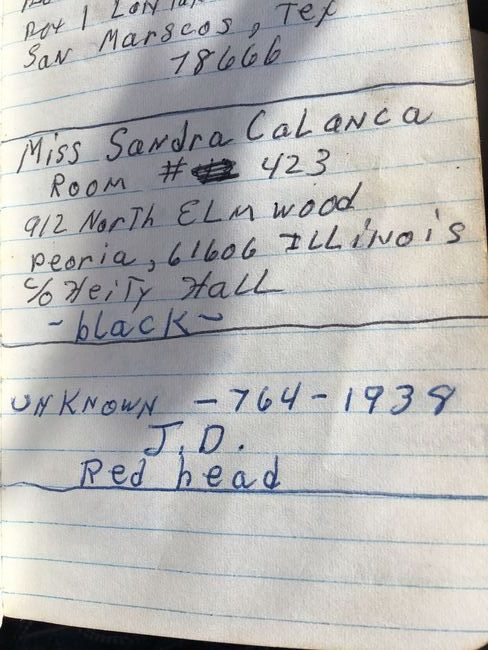 Box 1
San Marscos, Tex
78666
Miss Sandra Calanca
Room # 423
912 North ELmwood
peoria, 61606 ILLinois
c/o Heity Hall
- black -
unKnown - 764-1938
J.D.
Red head